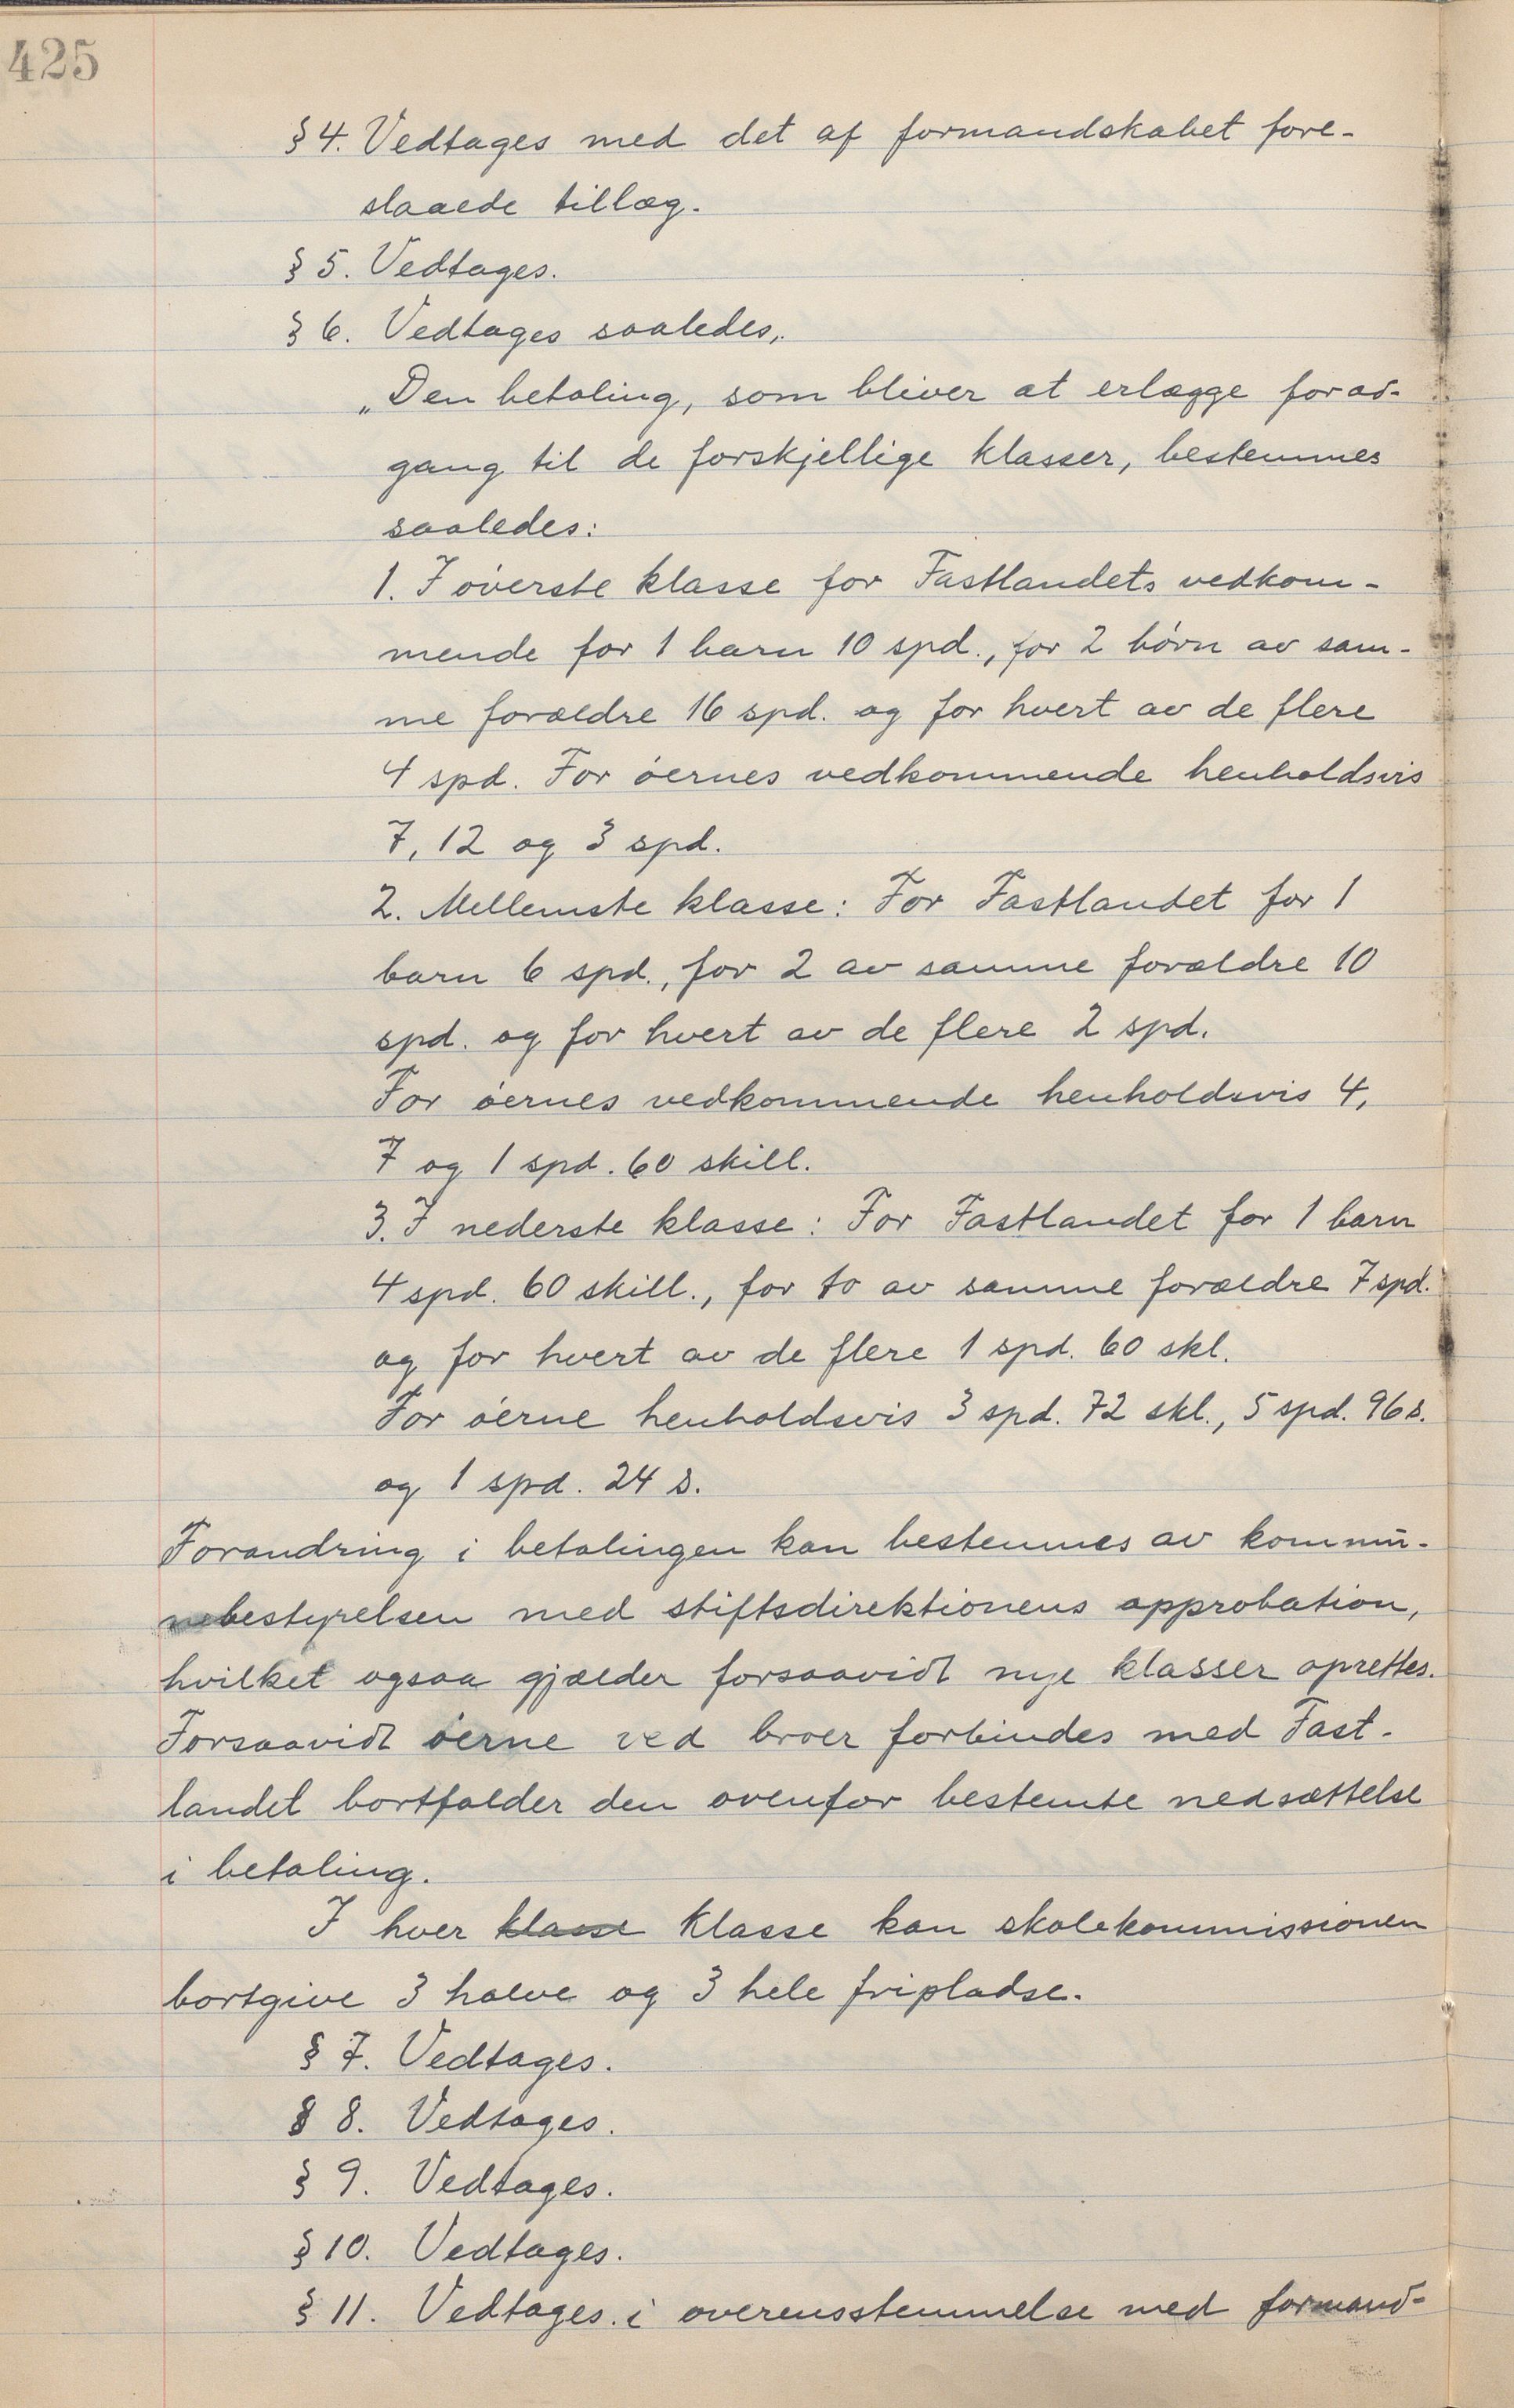 425
§ 4. Vedtages med det af formandskabet fore-
slaaede tillæg.
§ 5. Vedtages.
§ 6. Vedtages saaledes,
„Den betaling, som bliver at erlægge for ad-
gang til de forskjellige klasser, bestemmes
saaledes:
1. I øverste klasse for Fastlandets vedkom-
mende for 1 barn 10 spd., for 2 børn av sam-
me forældre 16 spd. og for hvert av de flere
4 spd. For øernes vedkommende henholdsvis
7, 12 og 3 spd.
2. Mellemste klasse: For Fastlandet for 1
barn 6 spd., for 2 av samme forældre 10
spd. og for hvert av de flere 2 spd.
For øernes vedkommende henholdsvis 4,
7 og 1 spd. 60 skill.
3. I nederste klasse: For Fastlandet for 1 barn
4 spd. 60 skill., for to av samme forældre 7 spd.
og for hvert av de flere 1 spd. 60 skl.
For øerne henholdsvis 3 spd. 72 skl., 5 spd. 96 s.
og 1 spd. 24 s.
Forandring i betalingen kan bestemmes av kommu-
nebestyrelsen med stiftsdirektionens approbation,
hvilket ogsaa gjælder forsaavidt nye klasser oprettes.
Forsaavidt øerne ved broer forbindes med Fast-
landet bortfalder den ovenfor bestemte nedsættelse
i betaling.
I hver klasse klasse kan skolekommissionen
bortgive 3 halve og 3 hele fripladse.
§ 7. Vedtages.
§ 8. Vedtages.
§ 9. Vedtages.
§ 10. Vedtages.
§ 11. Vedtages i overensstemmelse med formand-